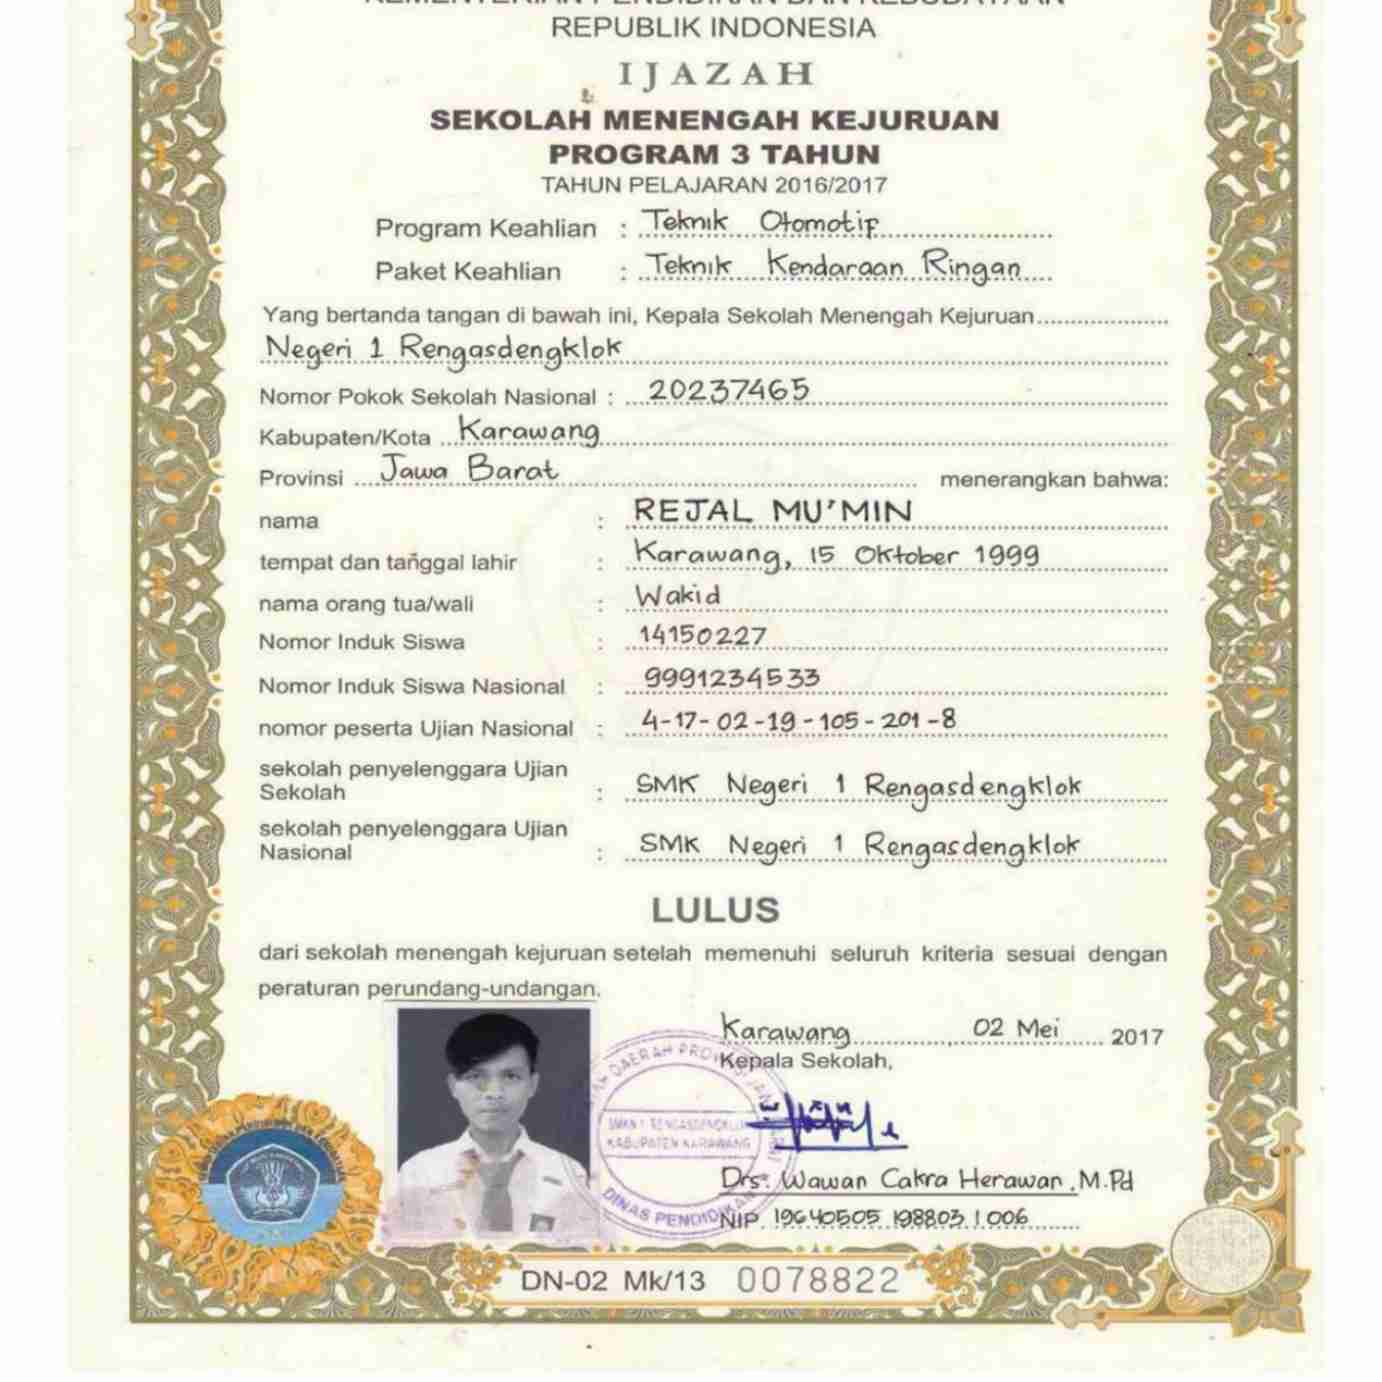 KEMENTERIAN PENDIDIKAN DAN KEBUDAYAAN
REPUBLIK INDONESIA
IJAZAH
SEKOLAH MENENGAH KEJURUAN
PROGRAM 3 TAHUN
TAHUN PELAJARAN 2016/2017
Program Keahlian : Teknik Otomotif
Paket Keahlian : Teknik Kendaraan Ringan
Yang bertanda tangan di bawah ini, Kepala Sekolah Menengah Kejuruan
Negeri 1 Rengasdengklok
Nomor Pokok Sekolah Nasional : 20237465
Kabupaten/Kota Karawang
Provinsi Jawa Barat menerangkan bahwa:
nama : REJAL MU'MIN
tempat dan tanggal lahir : Karawang, 15 Oktober 1999
nama orang tua/wali : Wakid
Nomor Induk Siswa : 14150227
Nomor Induk Siswa Nasional : 9991234533
nomor peserta Ujian Nasional : 4-17-02-19-105-201-8
sekolah penyelenggara Ujian
Sekolah : SMK Negeri 1 Rengasdengklok
sekolah penyelenggara Ujian
Nasional : SMK Negeri 1 Rengasdengklok
LULUS
dari sekolah menengah kejuruan setelah memenuhi seluruh kriteria sesuai dengan
peraturan perundang-undangan.
Karawang, 02 Mei 2017
Kepala Sekolah,
DAERAH PROVINSI JAWA
SMKN 1 RENGASDENGKLOK
KABUPATEN KARAWANG
DINAS PENDIDIKAN
Drs. Wawan Cakra Herawan, M.Pd
NIP. 19640505 198803 1 006
DN-02 Mk/13 0078822